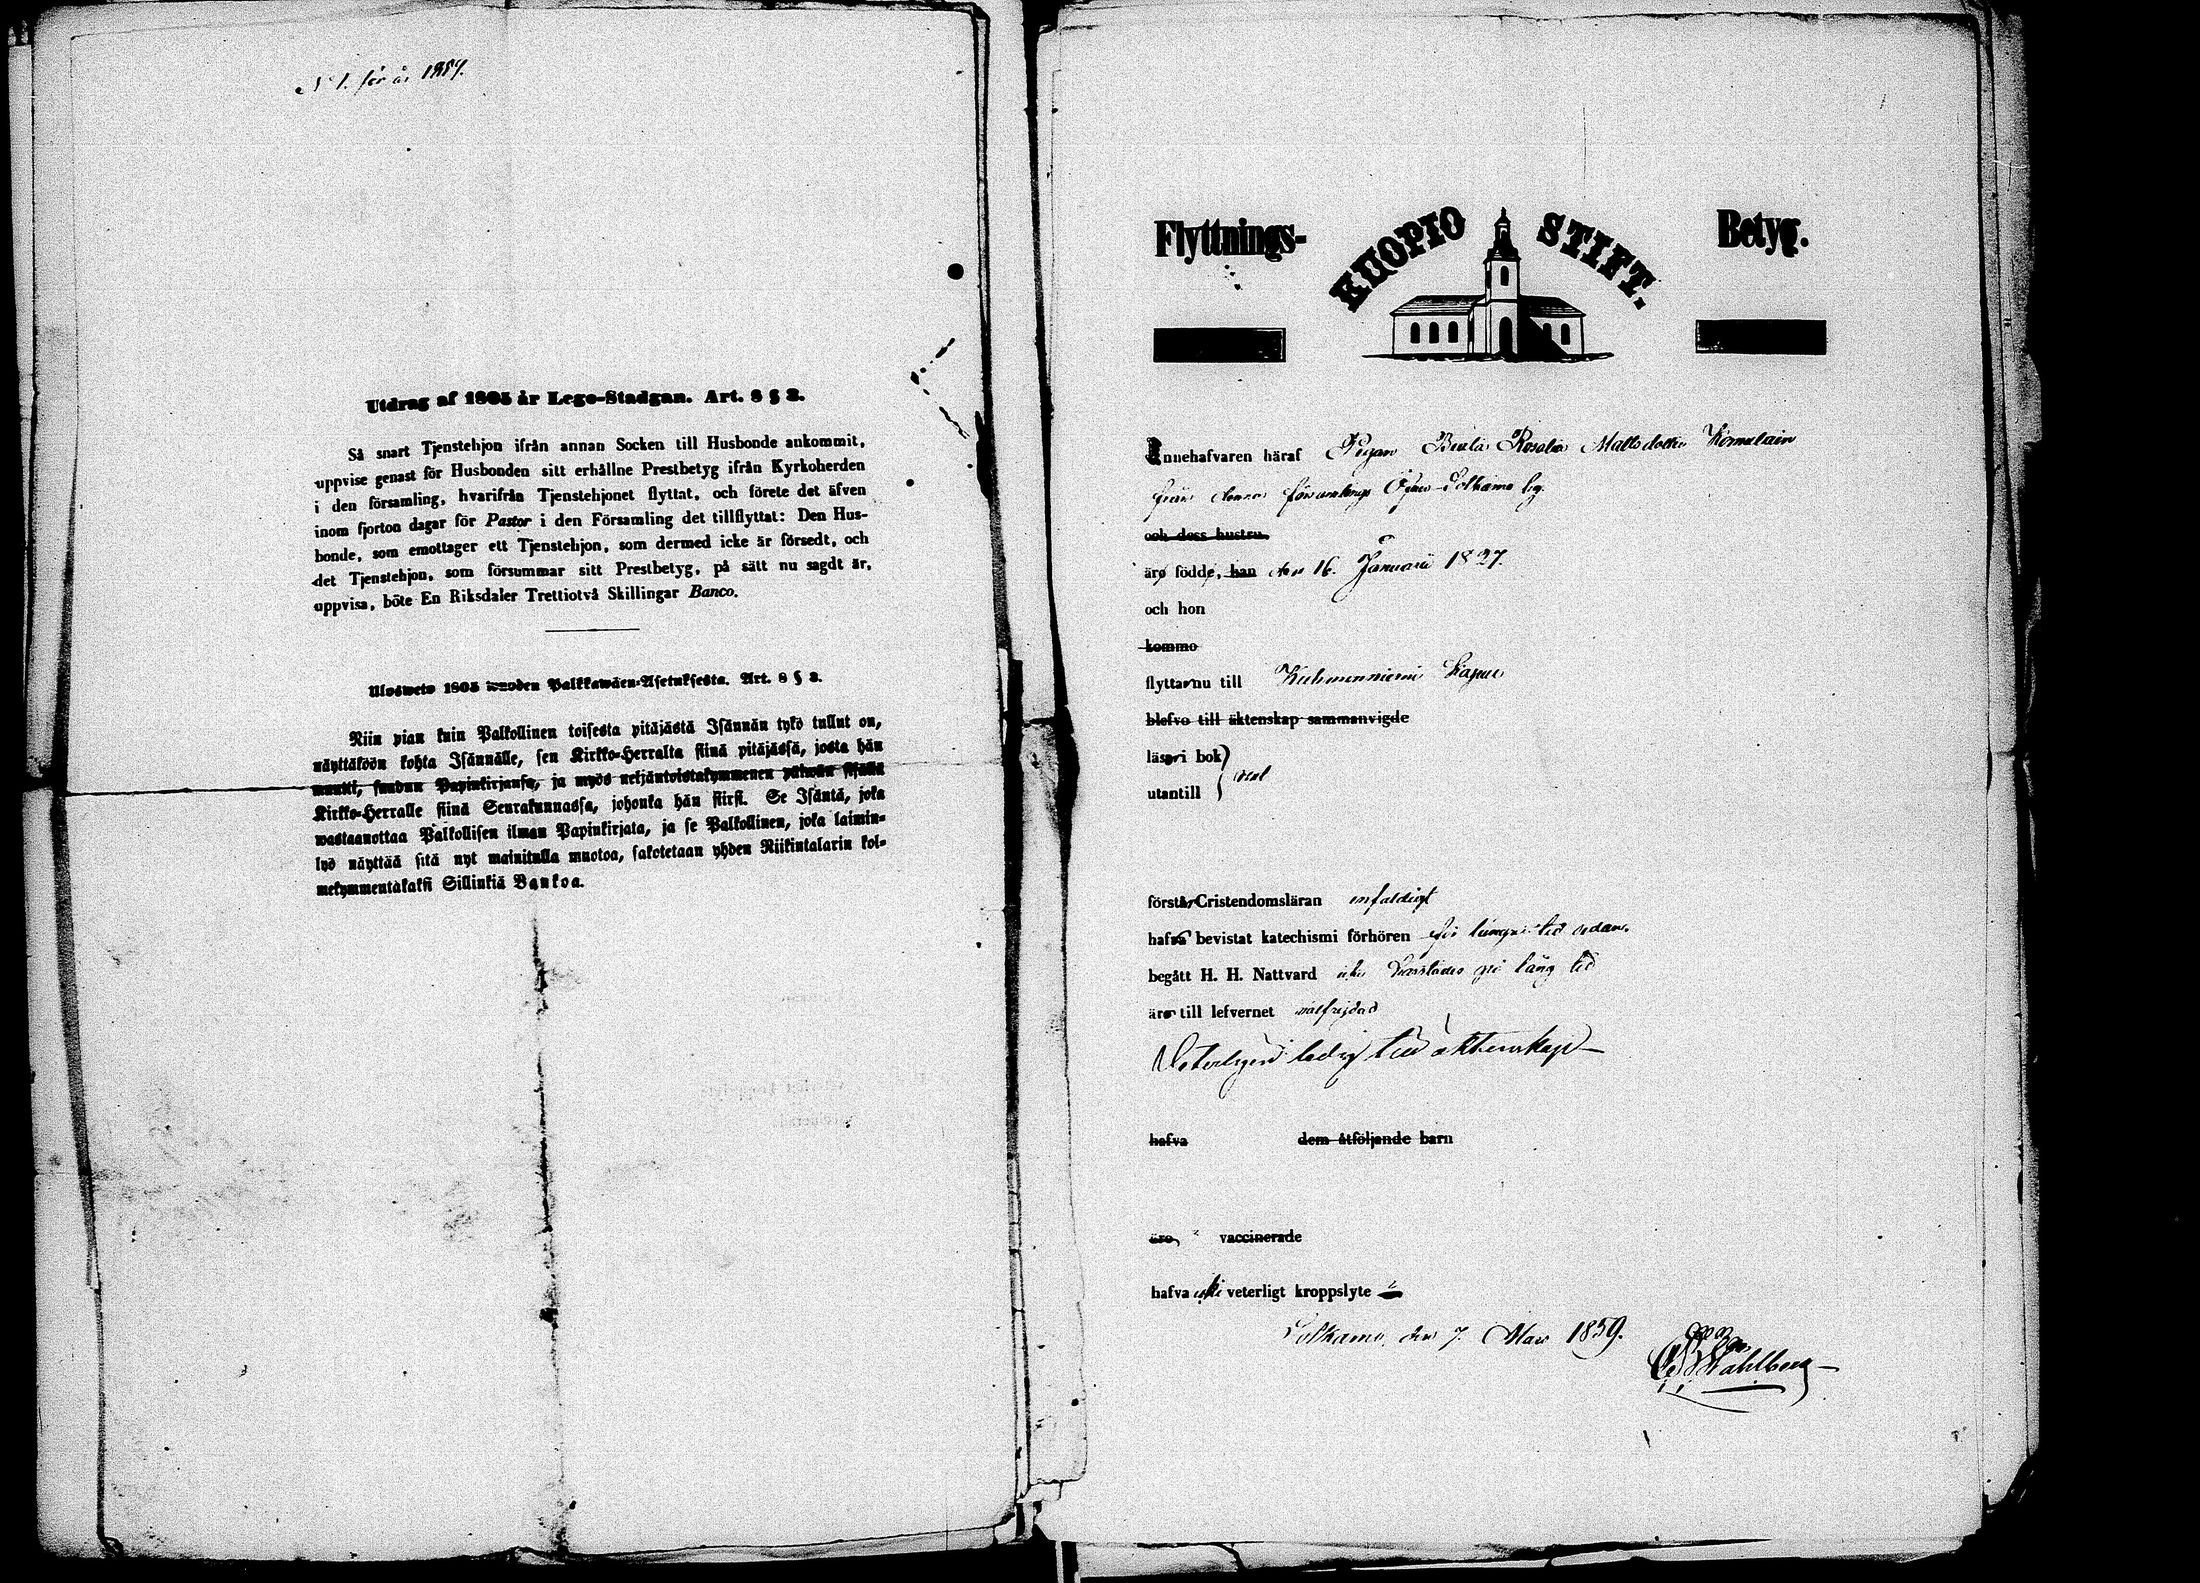 N 1. för år 1859.
Utdrag af 1805 år Lego-Stadgan. Art. 8 § 3.
Så snart Tjenstehjon ifrån annan Socken till Husbonde ankommit,
uppvise genast för Husbonden sitt erhållne Prestbetyg ifrån Kyrkoherden
i den församling, hvarifrån Tjenstehjonet flyttat, och förete det äfven
inom fjorton dagar för Pastor i den Församling det tillflyttat: Den Hus-
bonde, som emottager ett Tjenstehjon, som dermed icke är försedt, och
det Tjenstehjon, som försummar sitt Prestbetyg, på sätt nu sagdt är,
uppvisa, böte En Riksdaler Trettiotvå Skillingar Banco.
Ulosweto 1805 wuoden Palkkawäen-Asetuksesta. Art. 8 § 3.
Niin pian kuin Palkollinen toisesta pitäjästä Isännän tykö tullut on,
näyttäköön kohta Isännälle, sen Kirkko-Herralta siinä pitäjässä, josta hän
muutti, saadun Papinkirjansa, ja myös neljäntoistakymmenen päiwän sisällä
Kirkko-Herralle siinä Seurakunnassa, johonka hän siirsi. Se Isäntä, joka
wastaanottaa Palkollisen ilman Papinkirjata, ja se Palkollinen, joka laimin-
lyö näyttää sitä nyt mainitulla muotoa, sakotetaan yhden Riikintalarin kol-
mekymmentäkaksi Sillinkiä Bankoa.
Flyttnings- KUOPIO STIFT. Betyg.
Innehafvaren häraf Pigan Beata Rosalia Mattsdotter Komulain
från denna församlings Sotkamo by
och dess hustru
äro födde, han den 16. Januarii 1827.
och hon
komme
flytta nu till Kuhmonniemi Kapell
blefvo till äktenskap sammanvigde
läsa i bok
utantill } väl
förstå Cristendomsläran enfaldigt
hafva bevistat katechismi förhören för längre tid sedan.
begått H. H. Nattvard icke härstädes på lång tid
äro till lefvernet välfrejdad
Veterligen ledig till äktenskap
hafva dem åtföljande barn
äro vaccinerade
hafva icke veterligt kroppslyte
Sotkamo, den 7. Mars 1859.
Wahlberg